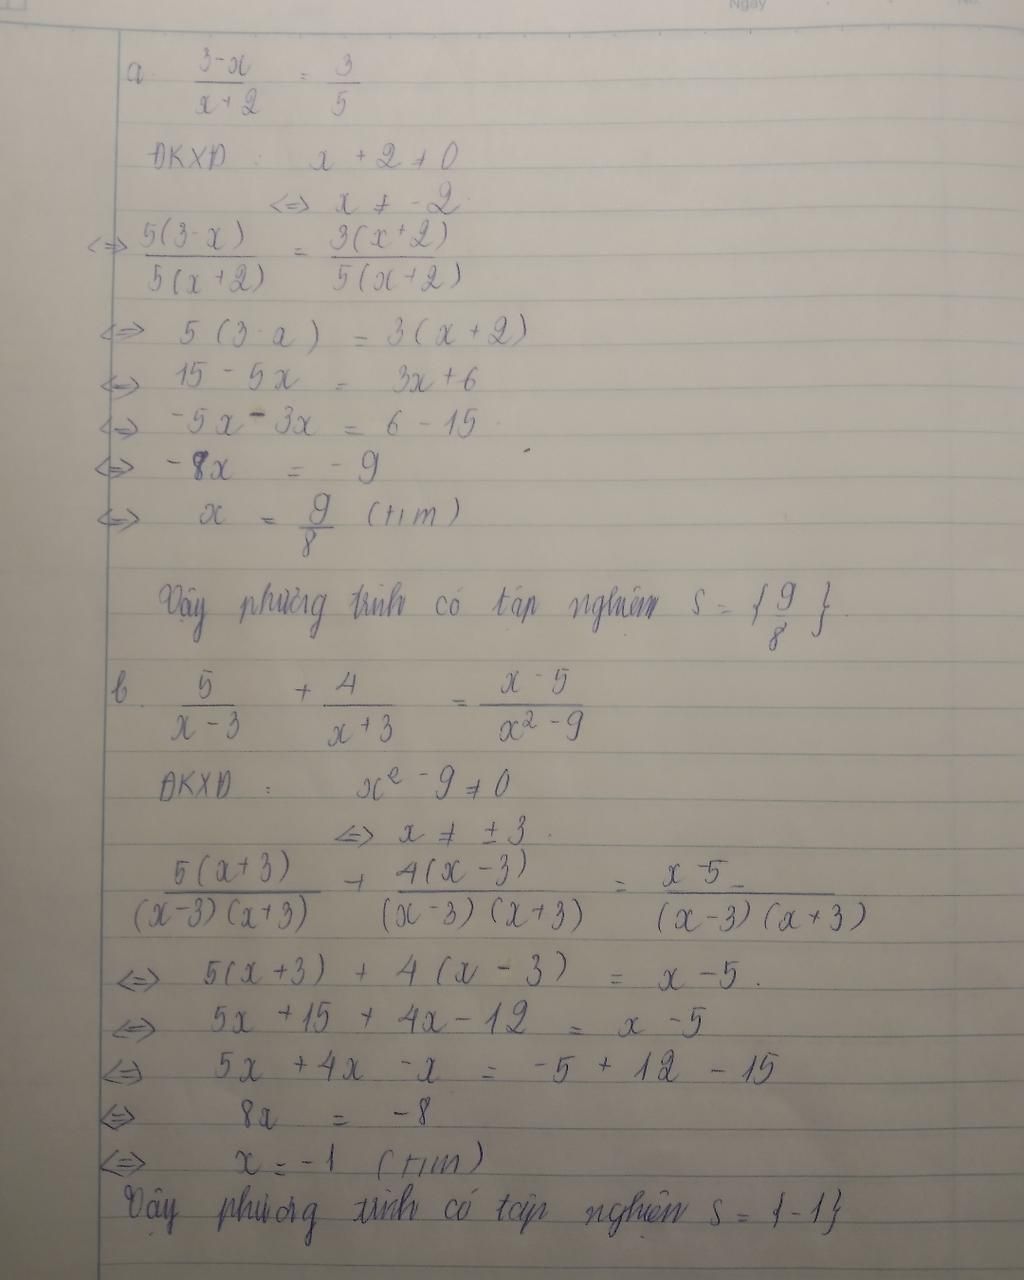 Ngày No.
a. (3-x)/(x+2) = 3/5
ĐKXĐ : x + 2 ≠ 0
<=> x ≠ -2
<=> 5(3-x)/5(x+2) = 3(x+2)/5(x+2)
<=> 5(3-x) = 3(x+2)
<=> 15 - 5x = 3x+6
<=> -5x - 3x = 6 - 15
<=> -8x = -9
<=> x = 9/8 (tm)
Vậy phương trình có tập nghiệm S = {9/8}.
b. 5/(x-3) + 4/(x+3) = (x-5)/(x²-9)
ĐKXĐ : x² - 9 ≠ 0
<=> x ≠ ±3.
5(x+3)/(x-3)(x+3) + 4(x-3)/(x-3)(x+3) = (x-5)/(x-3)(x+3)
<=> 5(x+3) + 4(x-3) = x-5.
<=> 5x + 15 + 4x - 12 = x - 5
<=> 5x + 4x - x = -5 + 12 - 15
<=> 8x = -8
<=> x = -1 (tm)
Vậy phương trình có tập nghiệm S = {-1}